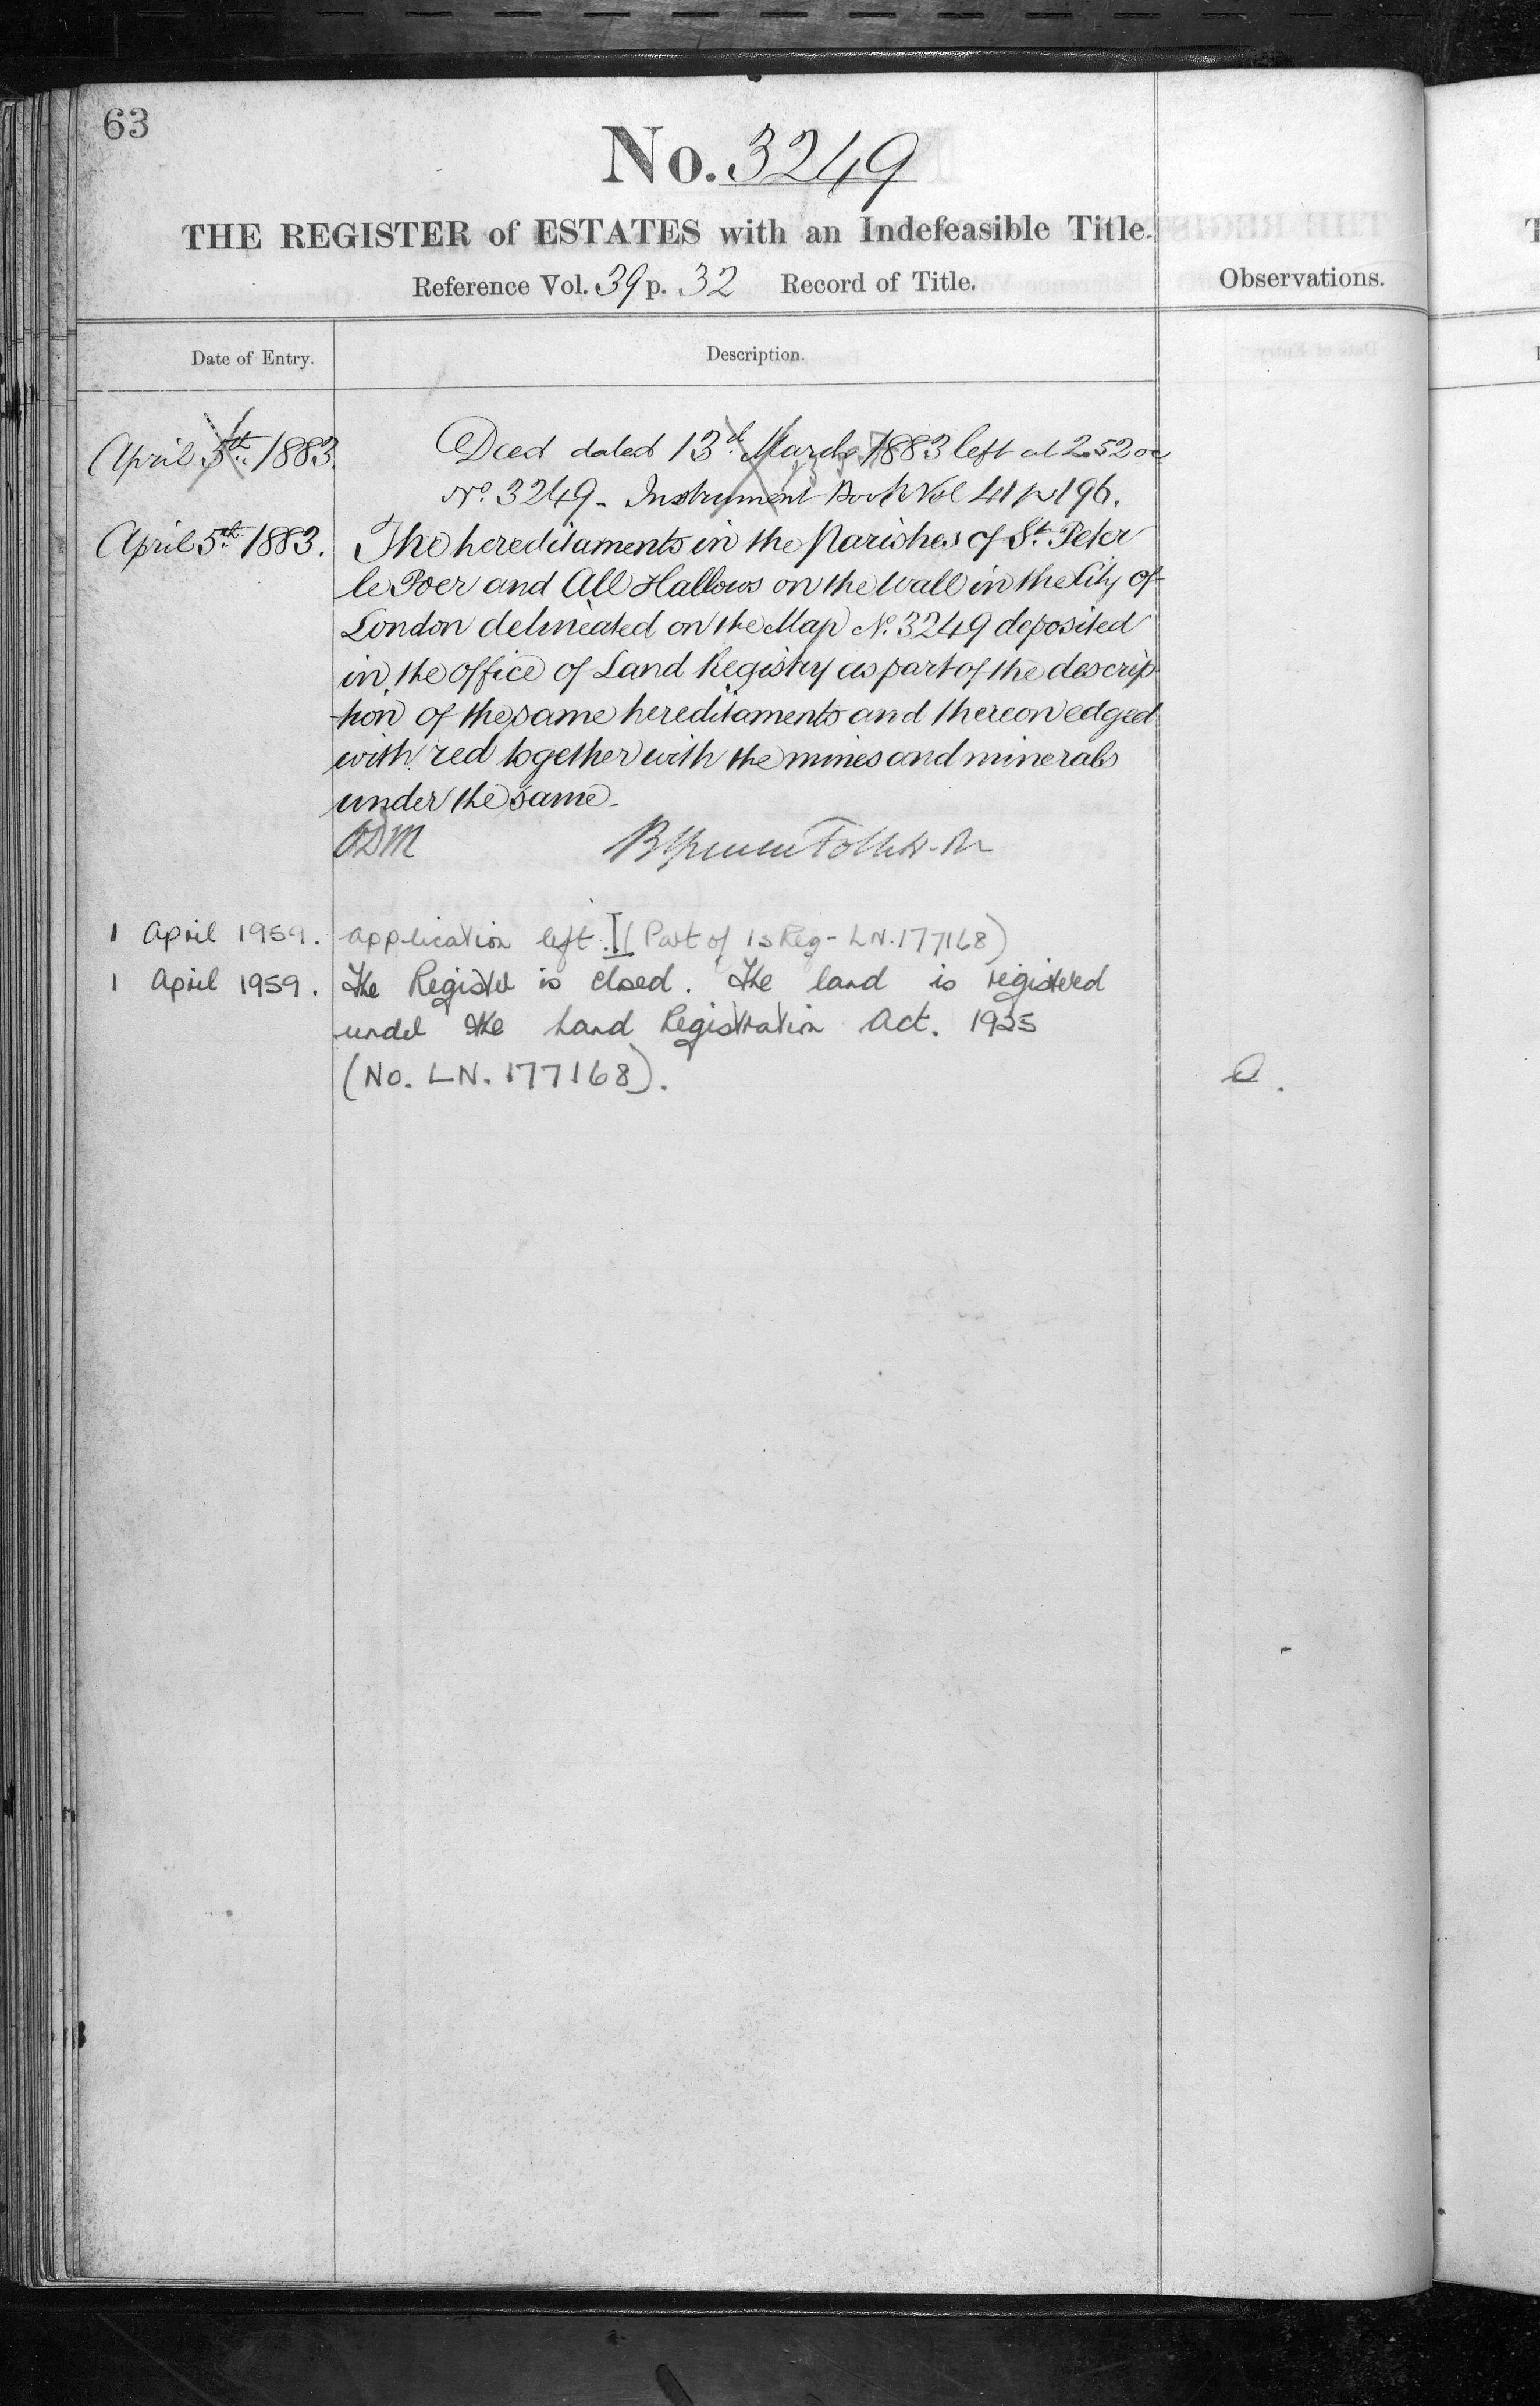 63
No. 3249
THE REGISTER of ESTATES with an Indefeasible Title.
Reference Vol. 39 p. 32 Record of Title.
Observations.
Date of Entry.
Description.
April 5th 1883. Deed dated 13th March 1883 left at 2.52 oc
No. 3249 - Instrument Book Vol 41 p 196.
April 5th 1883. The hereditaments in the Parishes of St. Peter
le Poer and All Hallows on the Wall in the City of
London delineated on the Map No. 3249 deposited
in the office of Land Registry as part of the descrip-
-tion of the same hereditaments and thereon edged
with red together with the mines and minerals
under the same.
1 April 1959. application left. (Part of 1s Reg - LN.177168)
1 April 1959. The Register is closed. The land is registered
under the Land Registration Act. 1925
(No. LN. 177168).